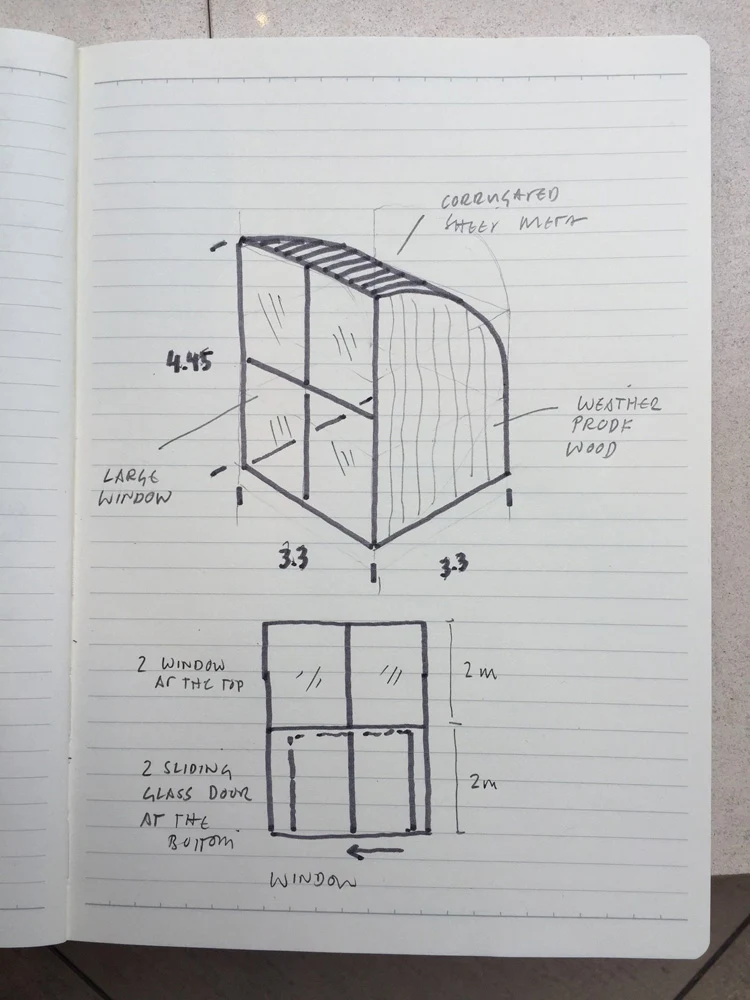 CORRUGATED
SHEET META
4.45
WEATHER
PROOF
WOOD
LARGE
WINDOW
3.3
3.3
2 WINDOW
AT THE TOP
2m
2 SLIDING
GLASS DOOR
AT THE
BOTTOM
2m
WINDOW